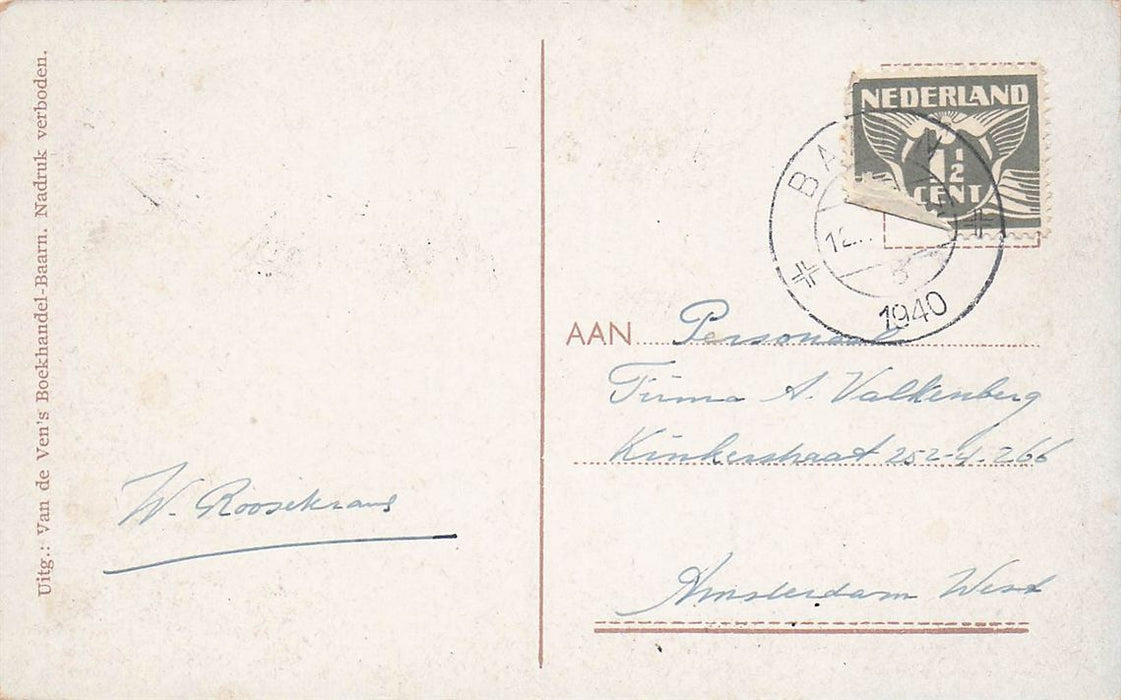 Uitg.: Van de Ven's Boekhandel-Baarn. Nadruk verboden.
W. Roosekrans
NEDERLAND
1½
CENT
1940
AAN Personeel
Firma A. Valkenberg
Kinkerstraat 252-4-266
Amsterdam West